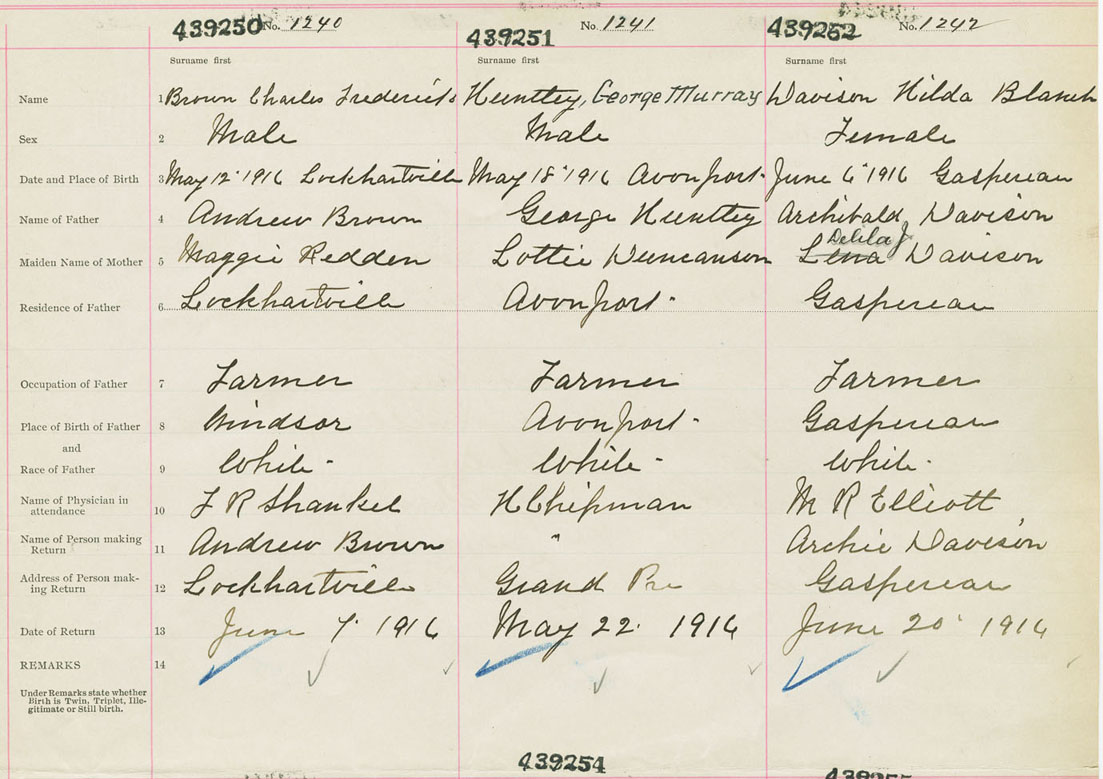 439250 No. 1240 439251 No. 1241 439252 No. 1242
Surname first Surname first Surname first
Name 1 Brown Charles Frederick Huntley, George Murray Davison Hilda Blanch
Sex 2 Male Male Female
Date and Place of Birth 3 May 12" 1916 Lockhartville May 18" 1916 Avonport- June 6" 1916 Gaspereau
Name of Father 4 Andrew Brown George Huntley Archibald Davison
Delila J
Maiden Name of Mother 5 Maggie Redden Lottie Duncanson Lena Davison
Residence of Father 6 Lockhartville Avonport- Gaspereau
Occupation of Father 7 Farmer Farmer Farmer
Place of Birth of Father 8 Windsor Avonport- Gaspereau
and
Race of Father 9 White- White- White-
Name of Physician in
attendance 10 F R Shankel H Chipman M R Elliott
Name of Person making
Return 11 Andrew Brown " Archie Davison
Address of Person mak-
ing Return 12 Lockhartville Grand Pre Gaspereau
Date of Return 13 June 7" 1916 May 22" 1916 June 20" 1916
REMARKS 14
Under Remarks state whether
Birth is Twin, Triplet, Ille-
gitimate or Still birth.
439254 439255